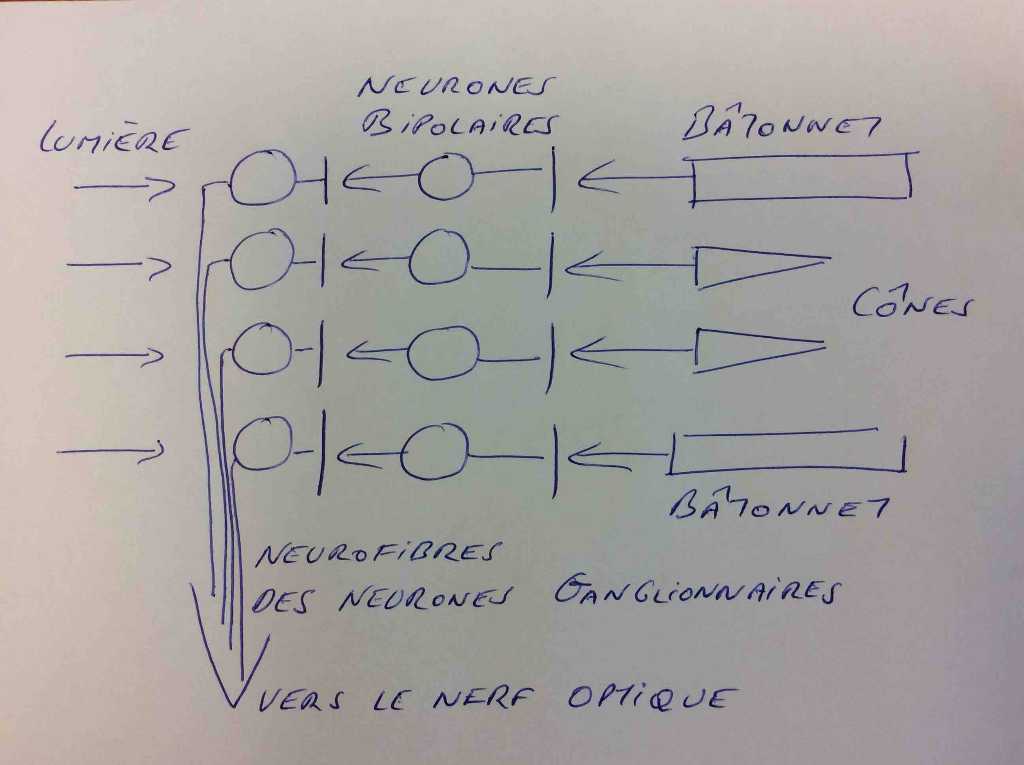 NEURONES
BIPOLAIRES
LUMIÈRE
BÂTONNET
CÔNES
BÂTONNET
NEUROFIBRES
DES NEURONES GANGLIONNAIRES
VERS LE NERF OPTIQUE